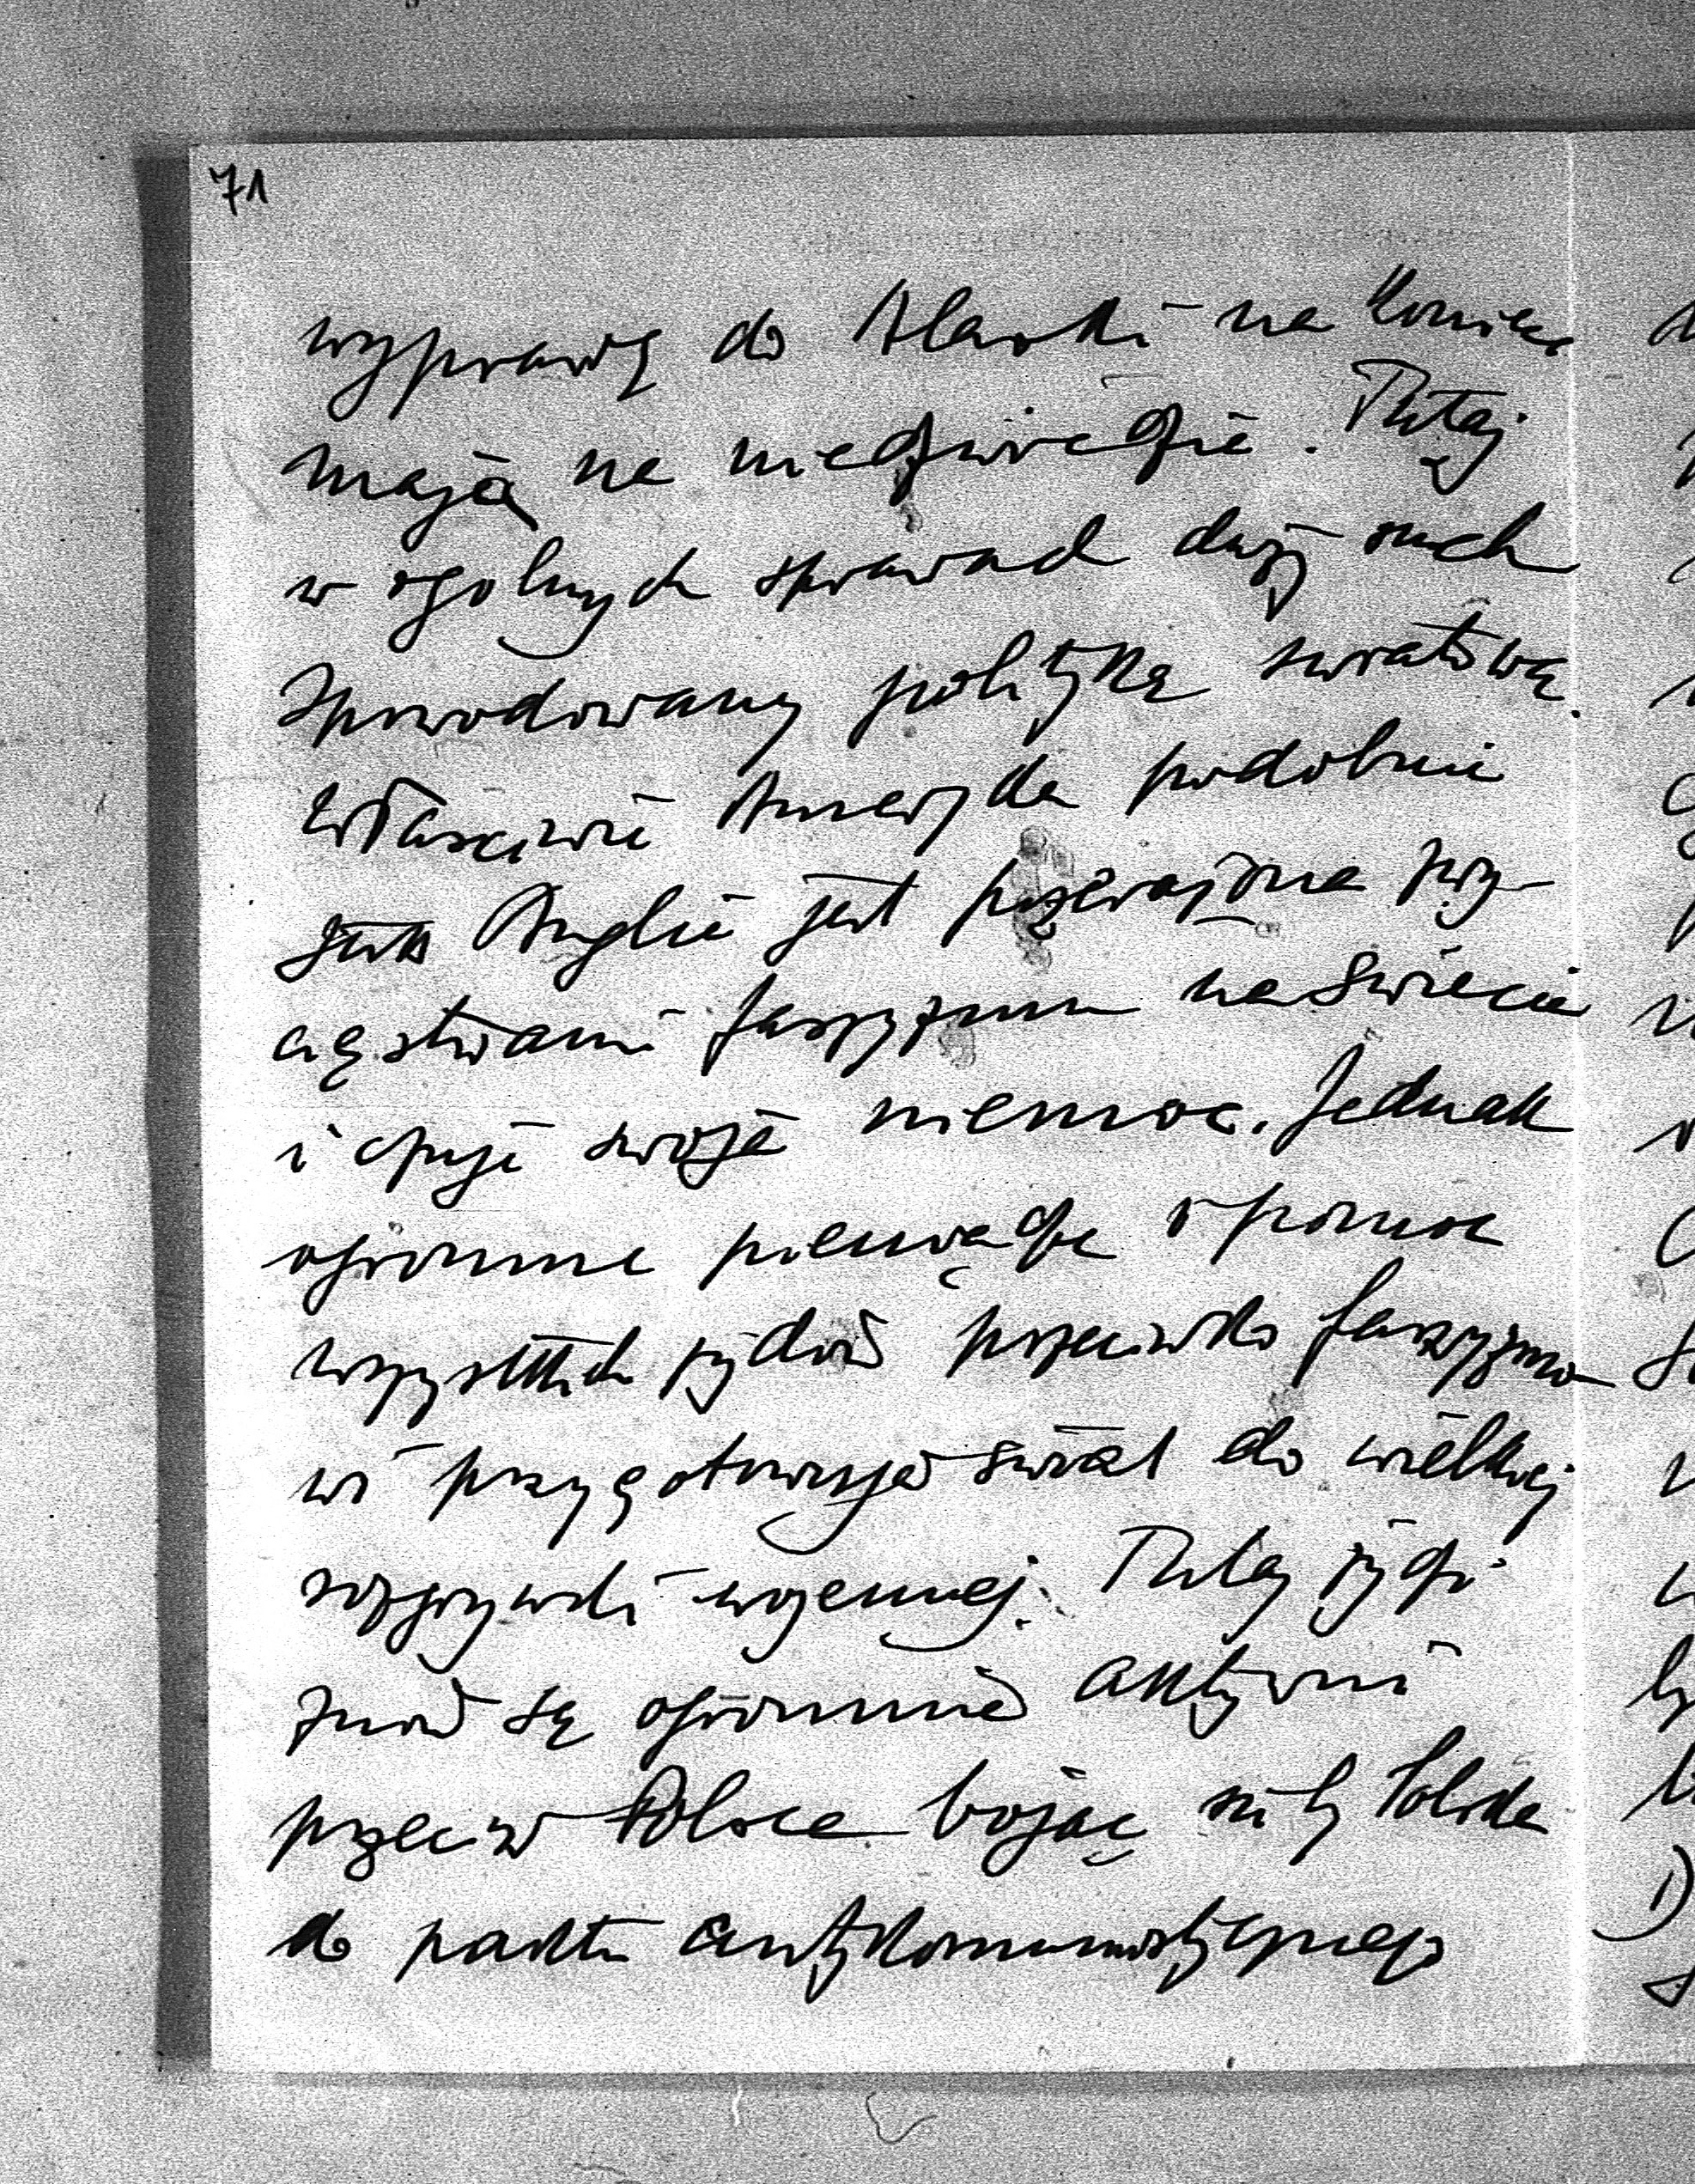 71
wyprawę do Alaski na koniec
maja na niedźwiedzie. Tutaj
w ogólnych sprawach duży ruch
spowodowany polityką światową.
Właściwie Ameryka podobnie
jak Anglia jest przerażona zwy-
cięstwami faszyzmu na świecie
i czuje swoją niemoc. Jednak
ogromne pieniądze i pomoc
wszystkich żydów przeciwko faszyzmo-
wi przygotowuje świat do wielkiej
rozgrywki wojennej. Tutaj żydzi
znów są ogromnie aktywni
przeciw Polsce bojąc się by Polska
do paktu antykomunistycznego